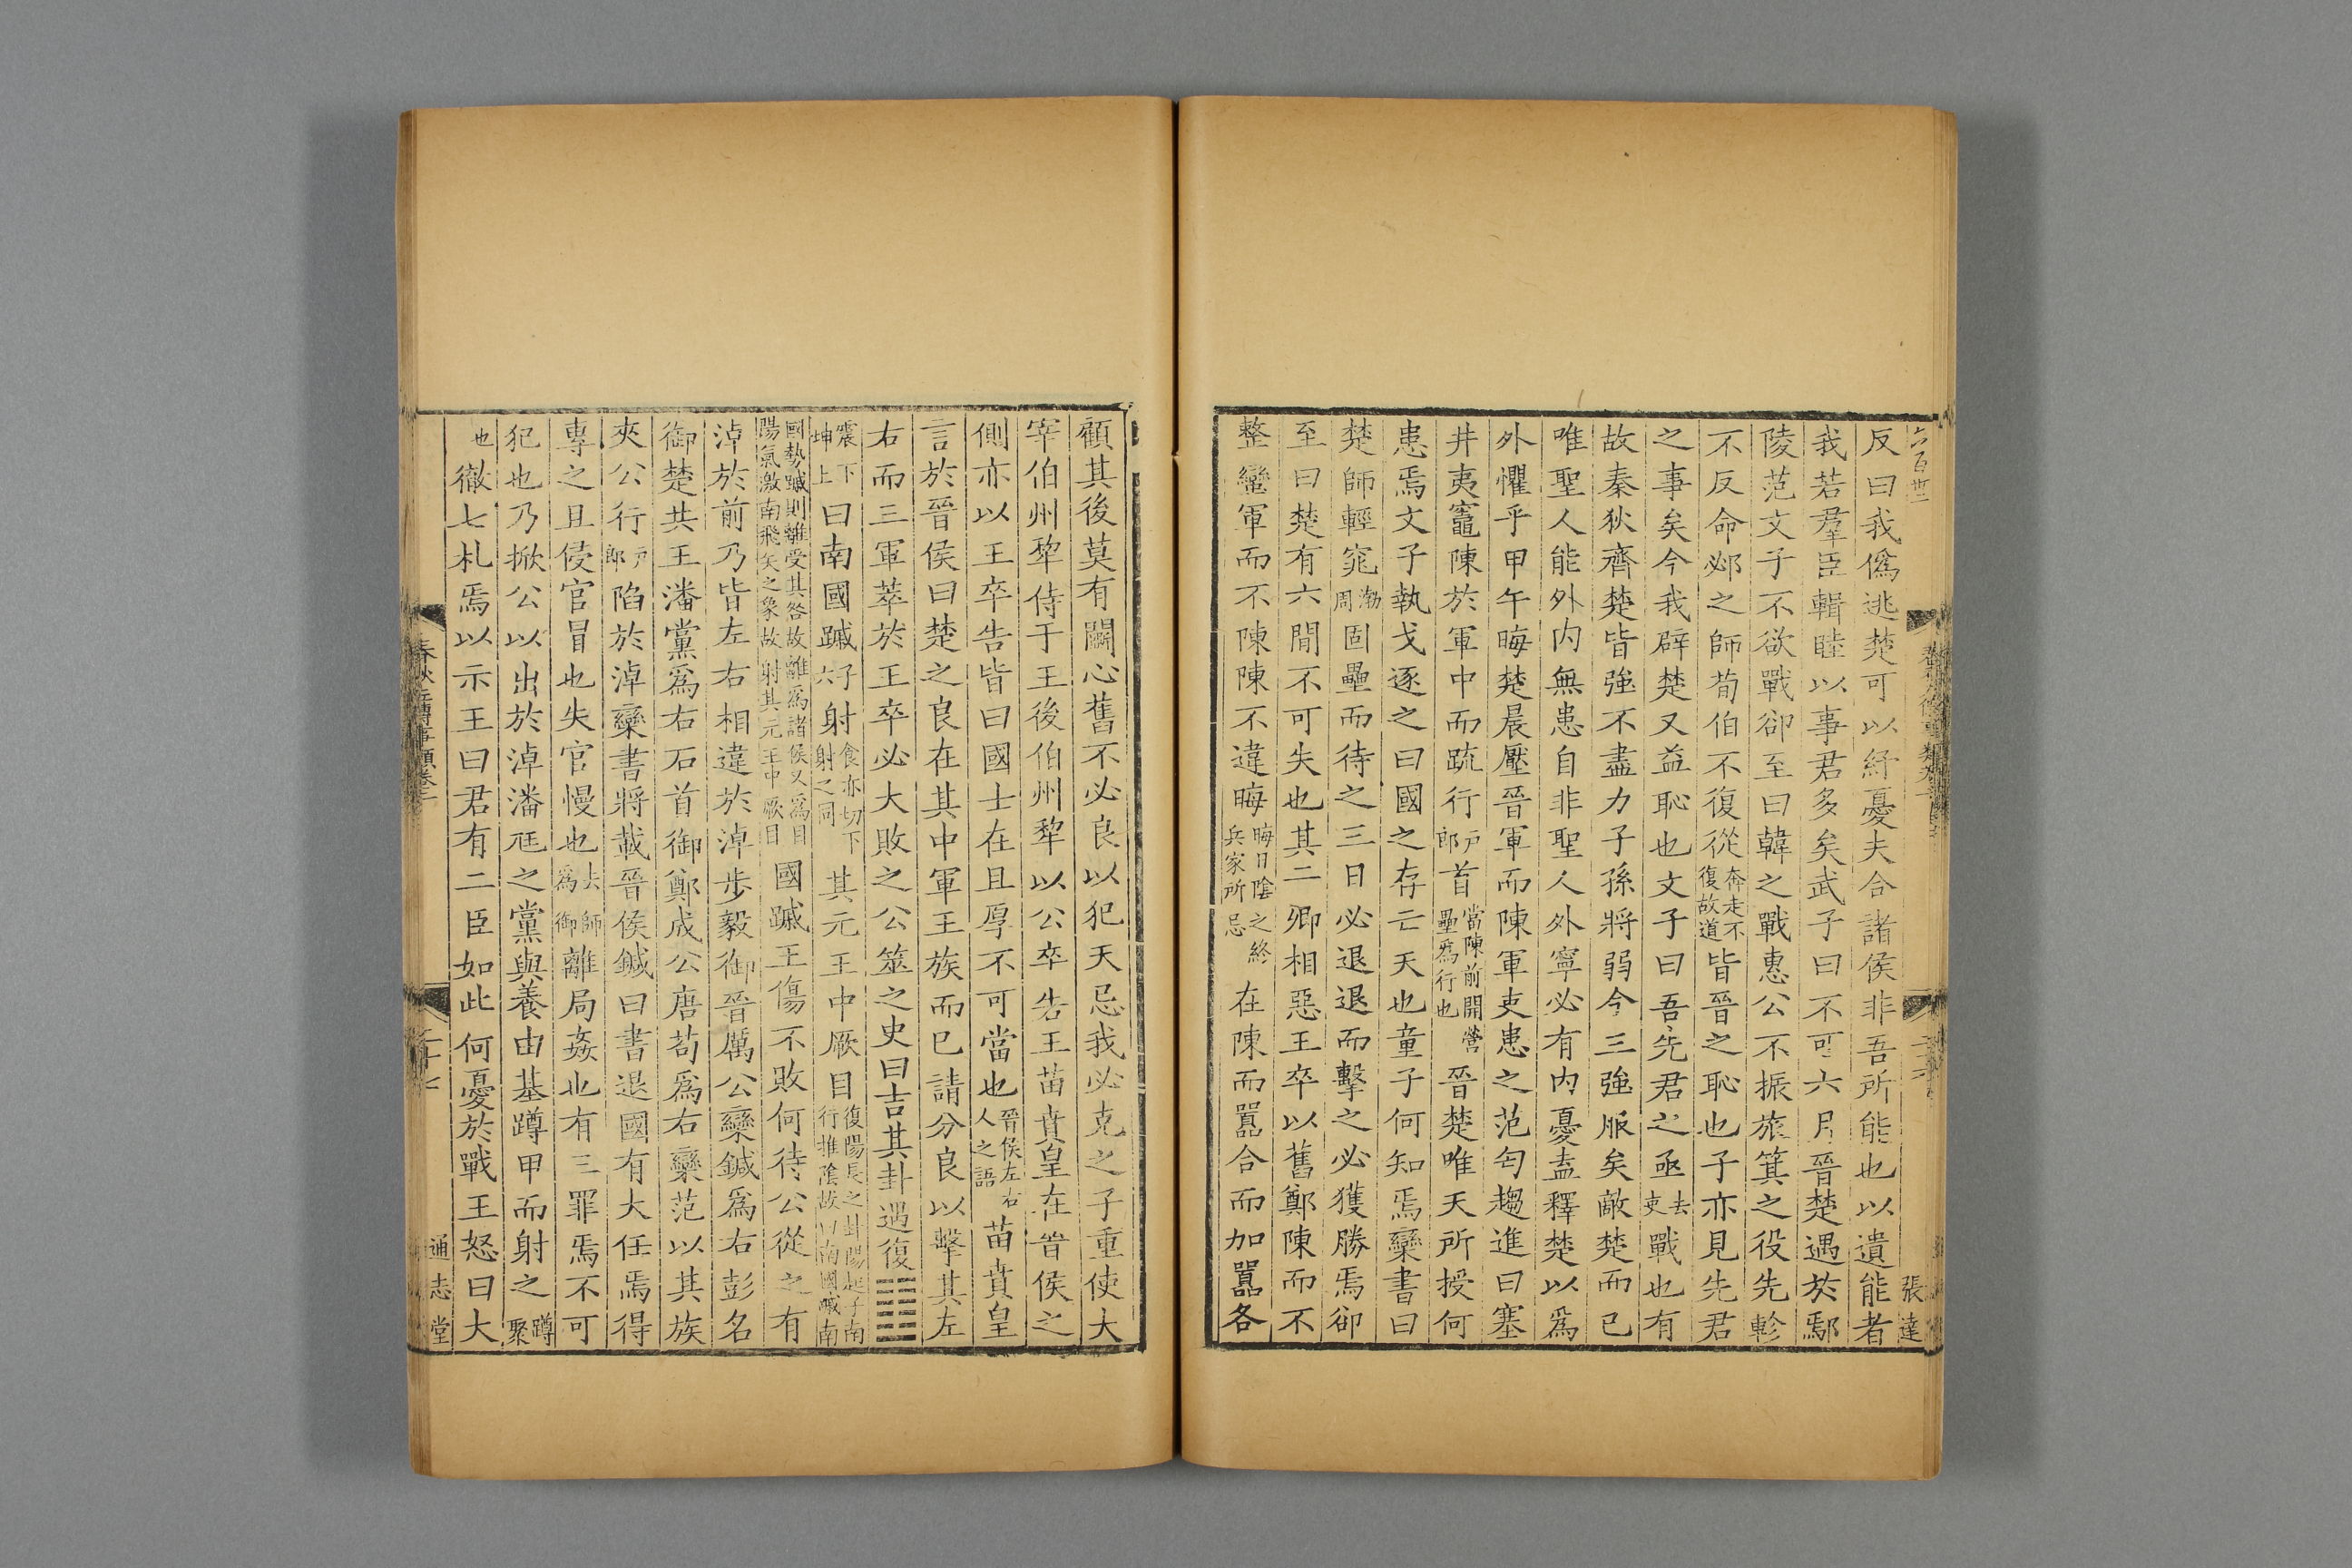 六百廿二
張達
反曰我僞逃楚可以紓憂夫合諸侯非吾所能也以遺能者
我若羣臣輯睦以事君多矣武子曰不可六月晉楚遇於鄢
陵范文子不欲戰郤至曰韓之戰惠公不振旅箕之役先軫
不反命邲之師荀伯不復從奔走不復故道皆晉之恥也子亦見先君
之事矣今我辟楚又益恥也文子曰吾先君之亟去吏戰也有
故秦狄齊楚皆強不盡力子孫將弱今三強服矣敵楚而已
唯聖人能外内無患自非聖人外寧必有内憂盍釋楚以爲
外懼乎甲午晦楚晨壓晉軍而陳軍吏患之范匄趨進曰塞
井夷竈陳於軍中而疏行戸郎首當陳前開營壘爲行也晉楚唯天所授何
患焉文子執戈逐之曰國之存亡天也童子何知焉欒書曰
楚師輕窕渤周固壘而待之三日必退退而擊之必獲勝焉郤
至曰楚有六間不可失也其二卿相惡王卒以舊鄭陳而不
整蠻軍而不陳陳不違晦晦日陰之終兵家所忌在陳而嚚合而加嚚各
顧其後莫有鬭心舊不必良以犯天忌我必克之子重使大
宰伯州犂侍于王後伯州犂以公卒告王苗賁皇在晉侯之
側亦以王卒告皆曰國士在且厚不可當也晉侯左右人之語苗賁皇
言於晉侯曰楚之良在其中軍王族而已請分良以擊其左
右而三軍萃於王卒必大敗之公筮之史曰吉其卦遇復䷗
震下坤上曰南國䠞子六射食亦切下射之同其元王中厥目復陽長之卦陽起子南行推陰故曰南國䠞南
國勢䠞則離受其咎故離爲諸侯又爲目陽氣激南飛矢之象故射其元王中厥目國䠞王傷不敗何待公從之有
淖於前乃皆左右相違於淖步毅御晉厲公欒鍼爲右彭名
御楚共王潘黨爲右石首御鄭成公唐苟爲右欒范以其族
夾公行戸郎陷於淖欒書將載晉侯鍼曰書退國有大任焉得
專之且侵官冒也失官慢也去爲師御離局姦也有三罪焉不可
犯也乃掀公以出於淖潘尫之黨與養由基蹲甲而射之蹲聚
也徹七札焉以示王曰君有二臣如此何憂於戰王怒曰大
春秋左傳事類卷二
二十七
通志堂